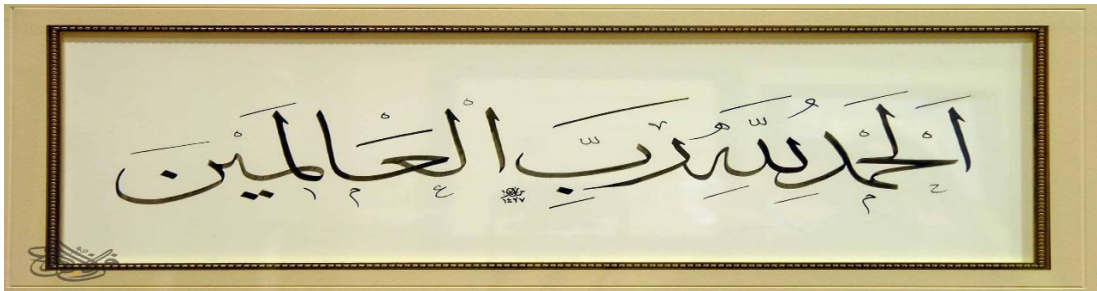 اَلْحَمْدُ لِلّٰهِ رَبِّ الْعَالَمِينَ
١٤٣٧